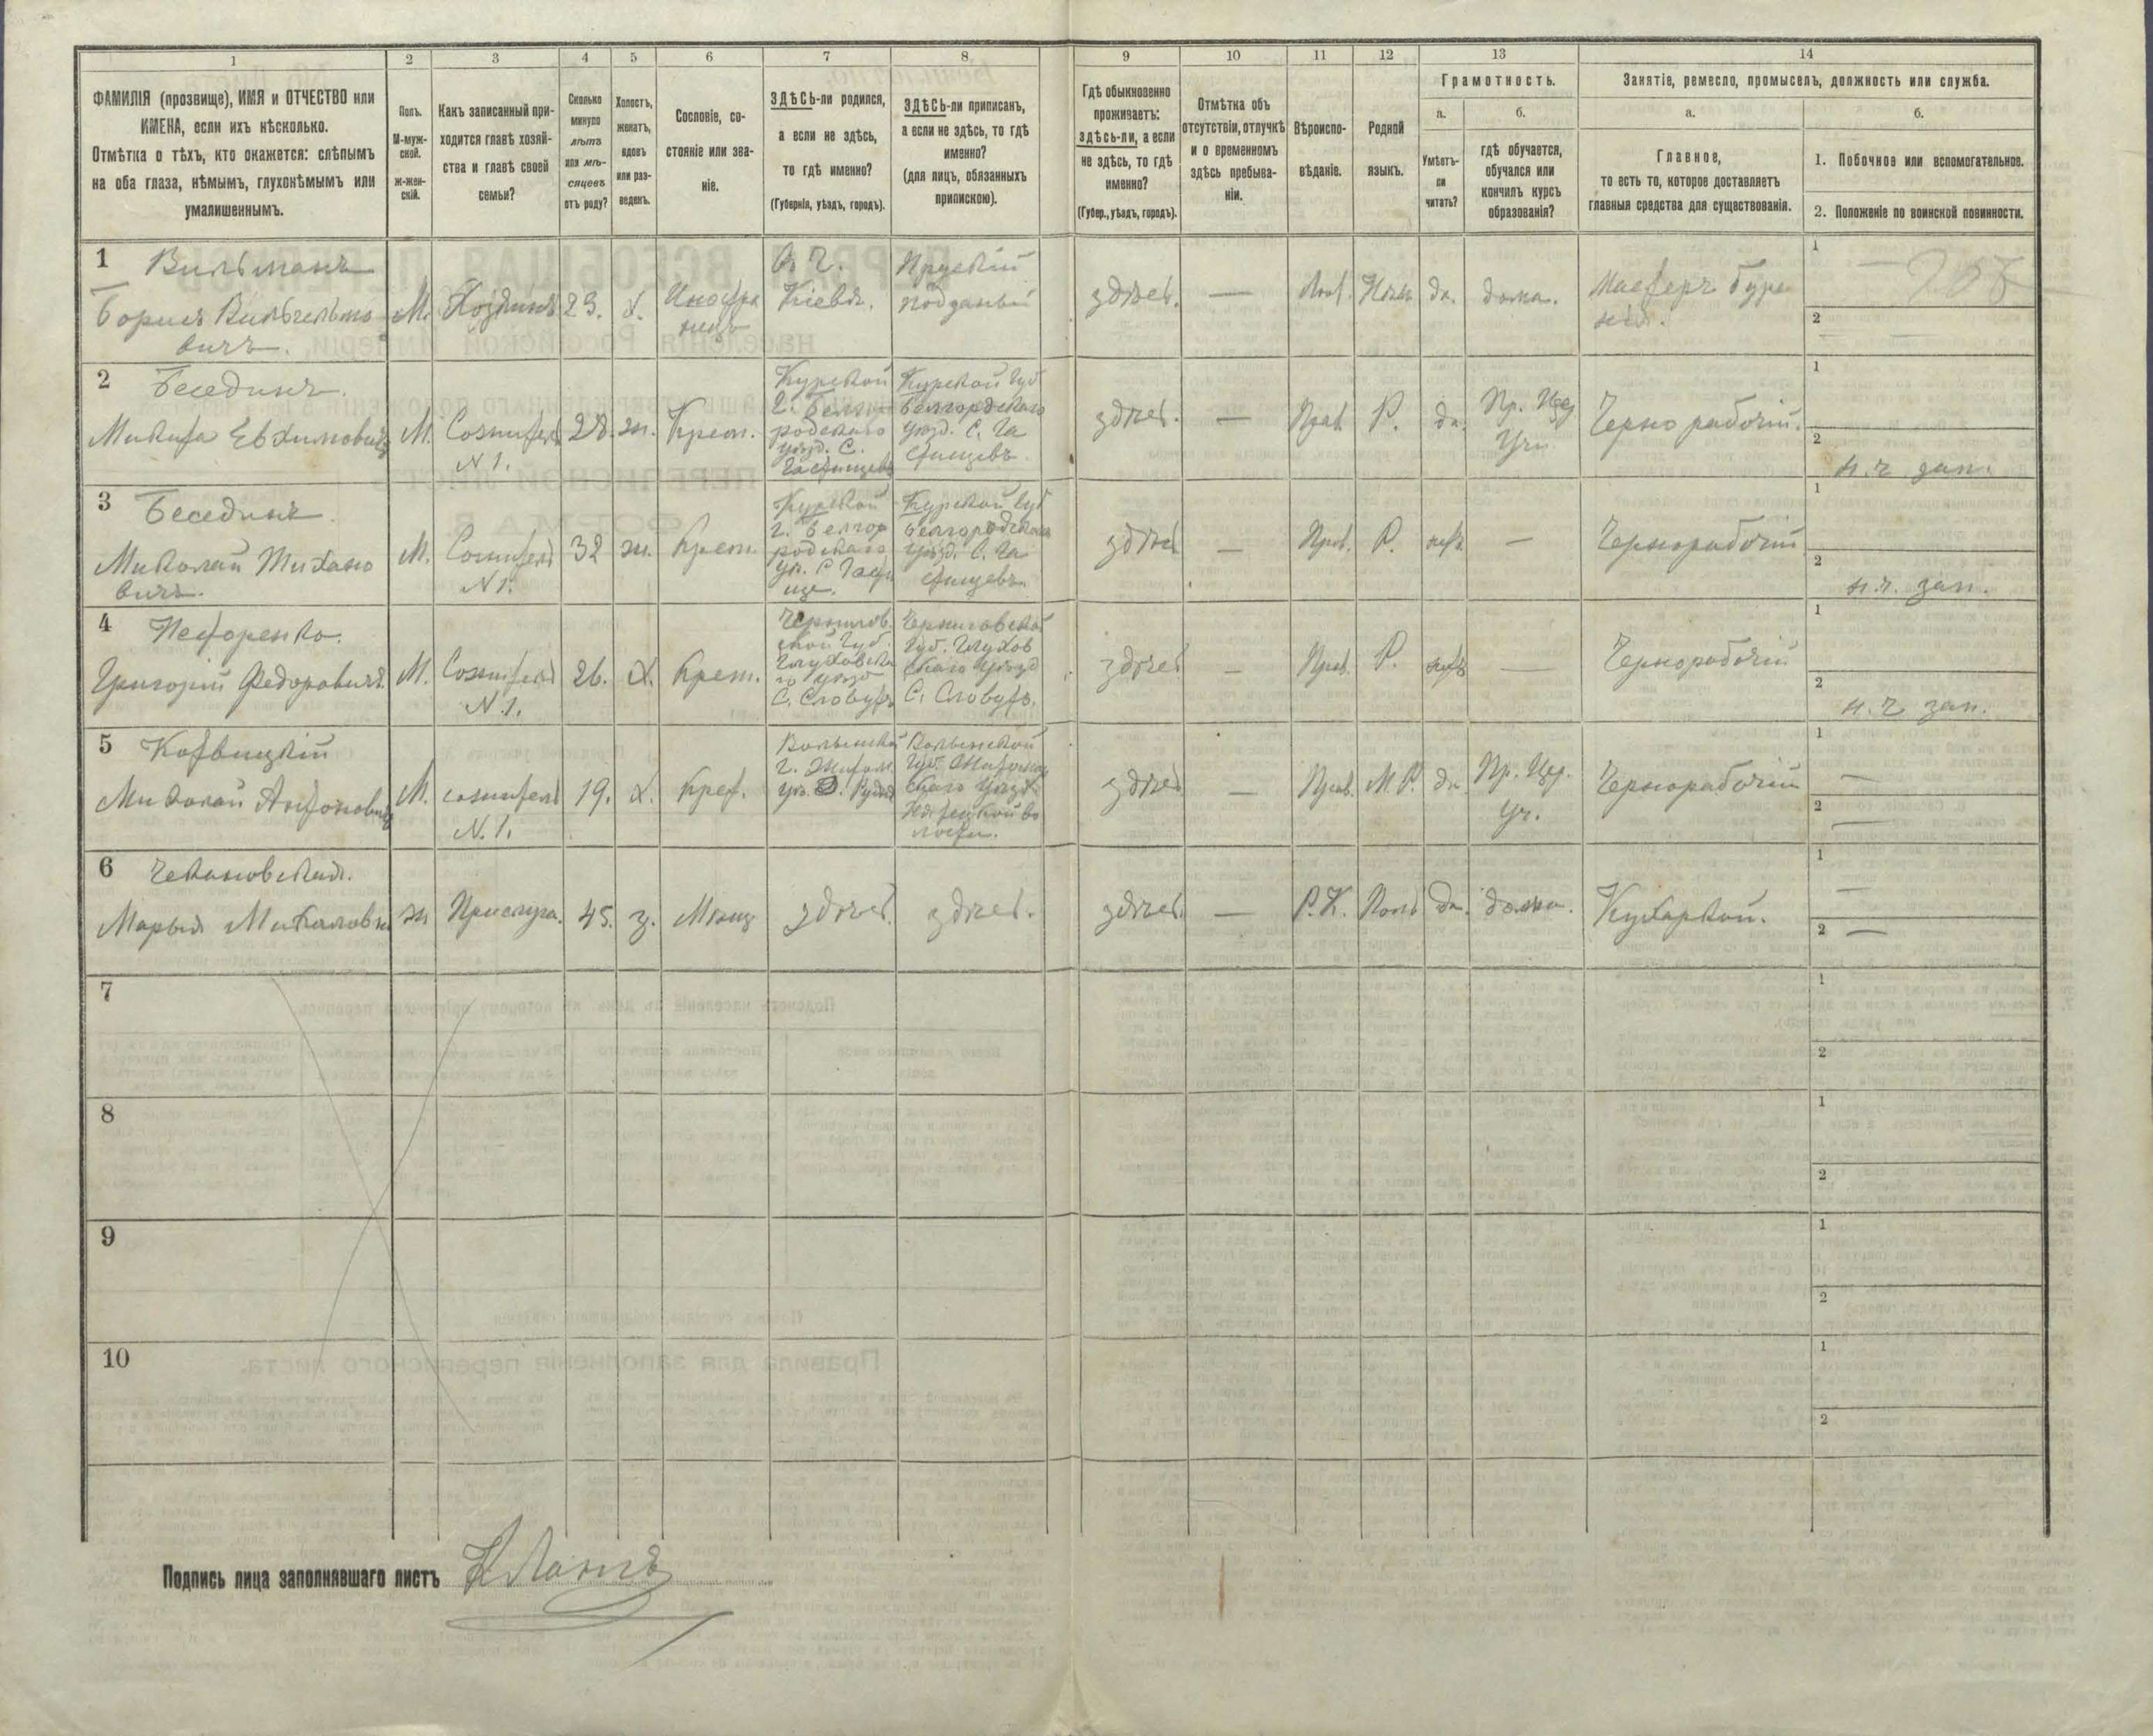 1
2
3
4
5
6
7
8
9
10
11
12
13
14
ФАМИЛІЯ (прозвище), ИМЯ и ОТЧЕСТВО или
ИМЕНА, если ихъ нѣсколько.
Отмѣтка о тѣхъ, кто окажется: слѣпымъ
на оба глаза, нѣмымъ, глухонѣмымъ или
умалишеннымъ.
Полъ.
М-муж-
ской.
Ж-жен-
скій.
Какъ записанный при-
ходится главѣ хозяй-
ства и главѣ своей
семьи?
Сколько
минуло
лѣтъ
или мѣ-
сяцевъ
отъ роду?
Холостъ,
женатъ,
вдовъ
или раз-
веденъ.
Сословіе, со-
стояніе или зва-
ніе.
ЗДѢСЬ-ли родился,
а если не здѣсь,
то гдѣ именно?
(Губернія, уѣздъ, городъ).
ЗДѢСЬ-ли приписанъ,
а если не здѣсь, то гдѣ
именно?
(для лицъ, обязанныхъ
припискою).
Гдѣ обыкновенно
проживаетъ:
здѣсь-ли, а если
не здѣсь, то гдѣ
именно?
(Губер., уѣздъ, городъ).
Отмѣтка объ
отсутствіи, отлучкѣ
и о временномъ
здѣсь пребыва-
ніи.
Вѣроиспо-
вѣданіе.
Родной
языкъ.
Грамотность.
а.
Умѣетъ-
ли
читать?
б.
гдѣ обучается,
обучался или
кончилъ курсъ
образованія?
Занятіе, ремесло, промыселъ, должность или служба.
а.
Главное,
то есть то, которое доставляетъ
главныя средства для существованія.
б.
1. Побочное или вспомогательное.
2. Положеніе по воинской повинности.
1 Вильманъ
Борисъ Вильгельмо
вичъ.
М.
Хозяинъ
23.
х.
Иностра
нецъ
Кіевъ.
Прускій
подданый
здѣсь.
—
Лют.
Нѣм.
да.
дома.
Мастеръ буре
нія.
1
2
2 Бесединъ.
Микита Евхимовичъ
М.
Сожитель
N 1.
28.
ж.
Крест.
Курской
г. Белго
родскаго
уѣзд. С.
Гостищевъ
Курской Губ.
Белгородскаго
уѣзд. С. Га
стищевъ
здѣсь.
—
Прав.
Р.
да.
Пр. Цер
Уч.
Чернорабочій.
1
2
н. ч. зап.
3 Бесединъ.
Миколай Тихано
вичъ.
М.
Сожитель
N 1.
32
ж.
Крест.
Курской
г. Белгор
родскаго
уѣ. С Гости
ще.
Курской Губ
Белгородскаго
уѣзд. С. Га
стищевъ
здѣсь
—
Прав.
Р.
нѣтъ
—
Чернорабочій
1
2
н. ч. зап.
4 Нестеренко.
Григорій Федоровичъ.
М.
Сожитель
N 1.
26.
х.
Крест.
Чернигов.
ской Губ.
Глуховска
го уѣзд
С. Словутъ
Черниговской
Губ. Глухов
скаго уѣзд
С. Словутъ.
здѣсь
—
Прав.
Р.
нѣтъ
—
Чернорабочій
1
2
н. ч. зап.
5
Миколай Антоновичъ
М.
сожитель
N. 1.
19.
х.
Крест.
Волынской
г. Житом.
Волынской
Губ. Житомир
скаго уѣзд.
во
лости.
здѣсь
—
Прав.
М. Р.
да.
Пр. Цер.
Уч.
Чернорабочій
1
—
2
—
6 Чекановская.
Марья Михаловна
ж
Прислуга.
45.
з.
Мѣщ
здѣсь.
здѣсь.
здѣсь.
—
Р. К.
Поль
да.
дома.
Кухаркой.
1
—
2 —
7
1
2
8
1
2
9
1
2
10
1
2
Подпись лица заполнявшаго листъ